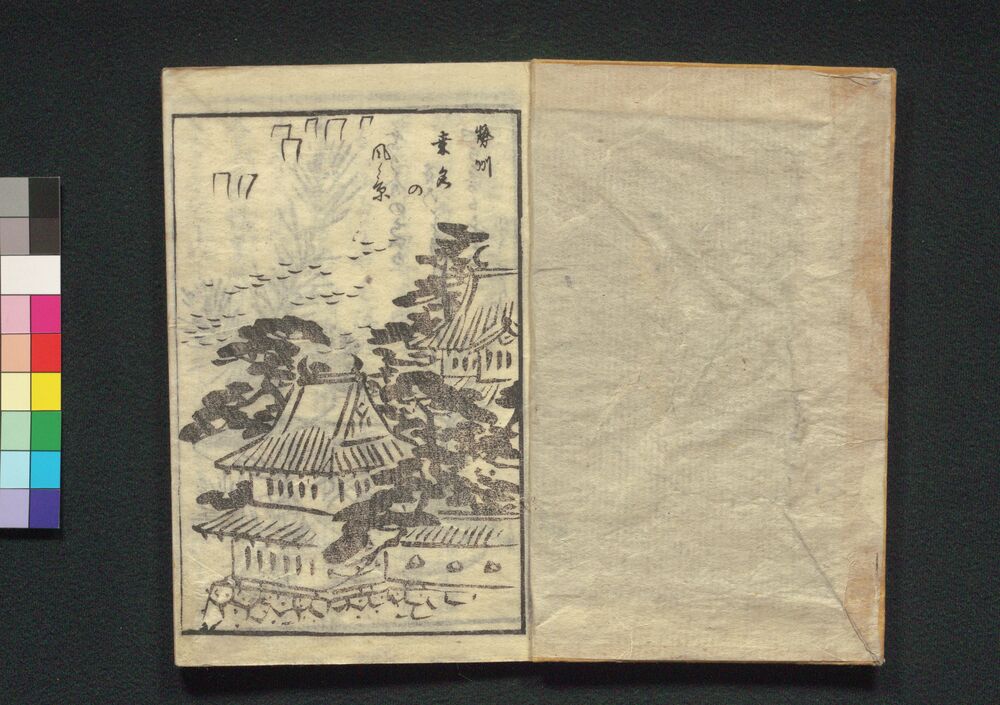 勢州
桒名
の
風景